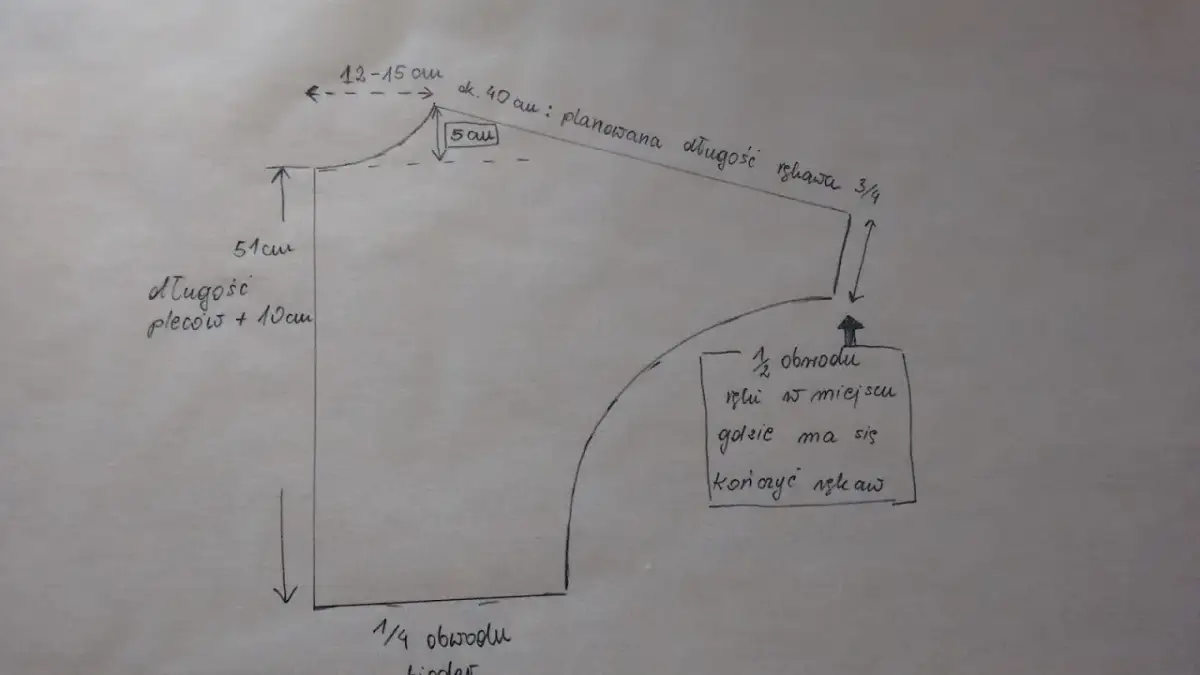 12-15 cm
ok. 40 cm : planowana długość rękawa 3/4
5 cm
51 cm
długość
pleców + 10 cm
1/2 obwodu
ręki w miejscu
gdzie ma się
kończyć rękaw
1/4 obwodu
bioder